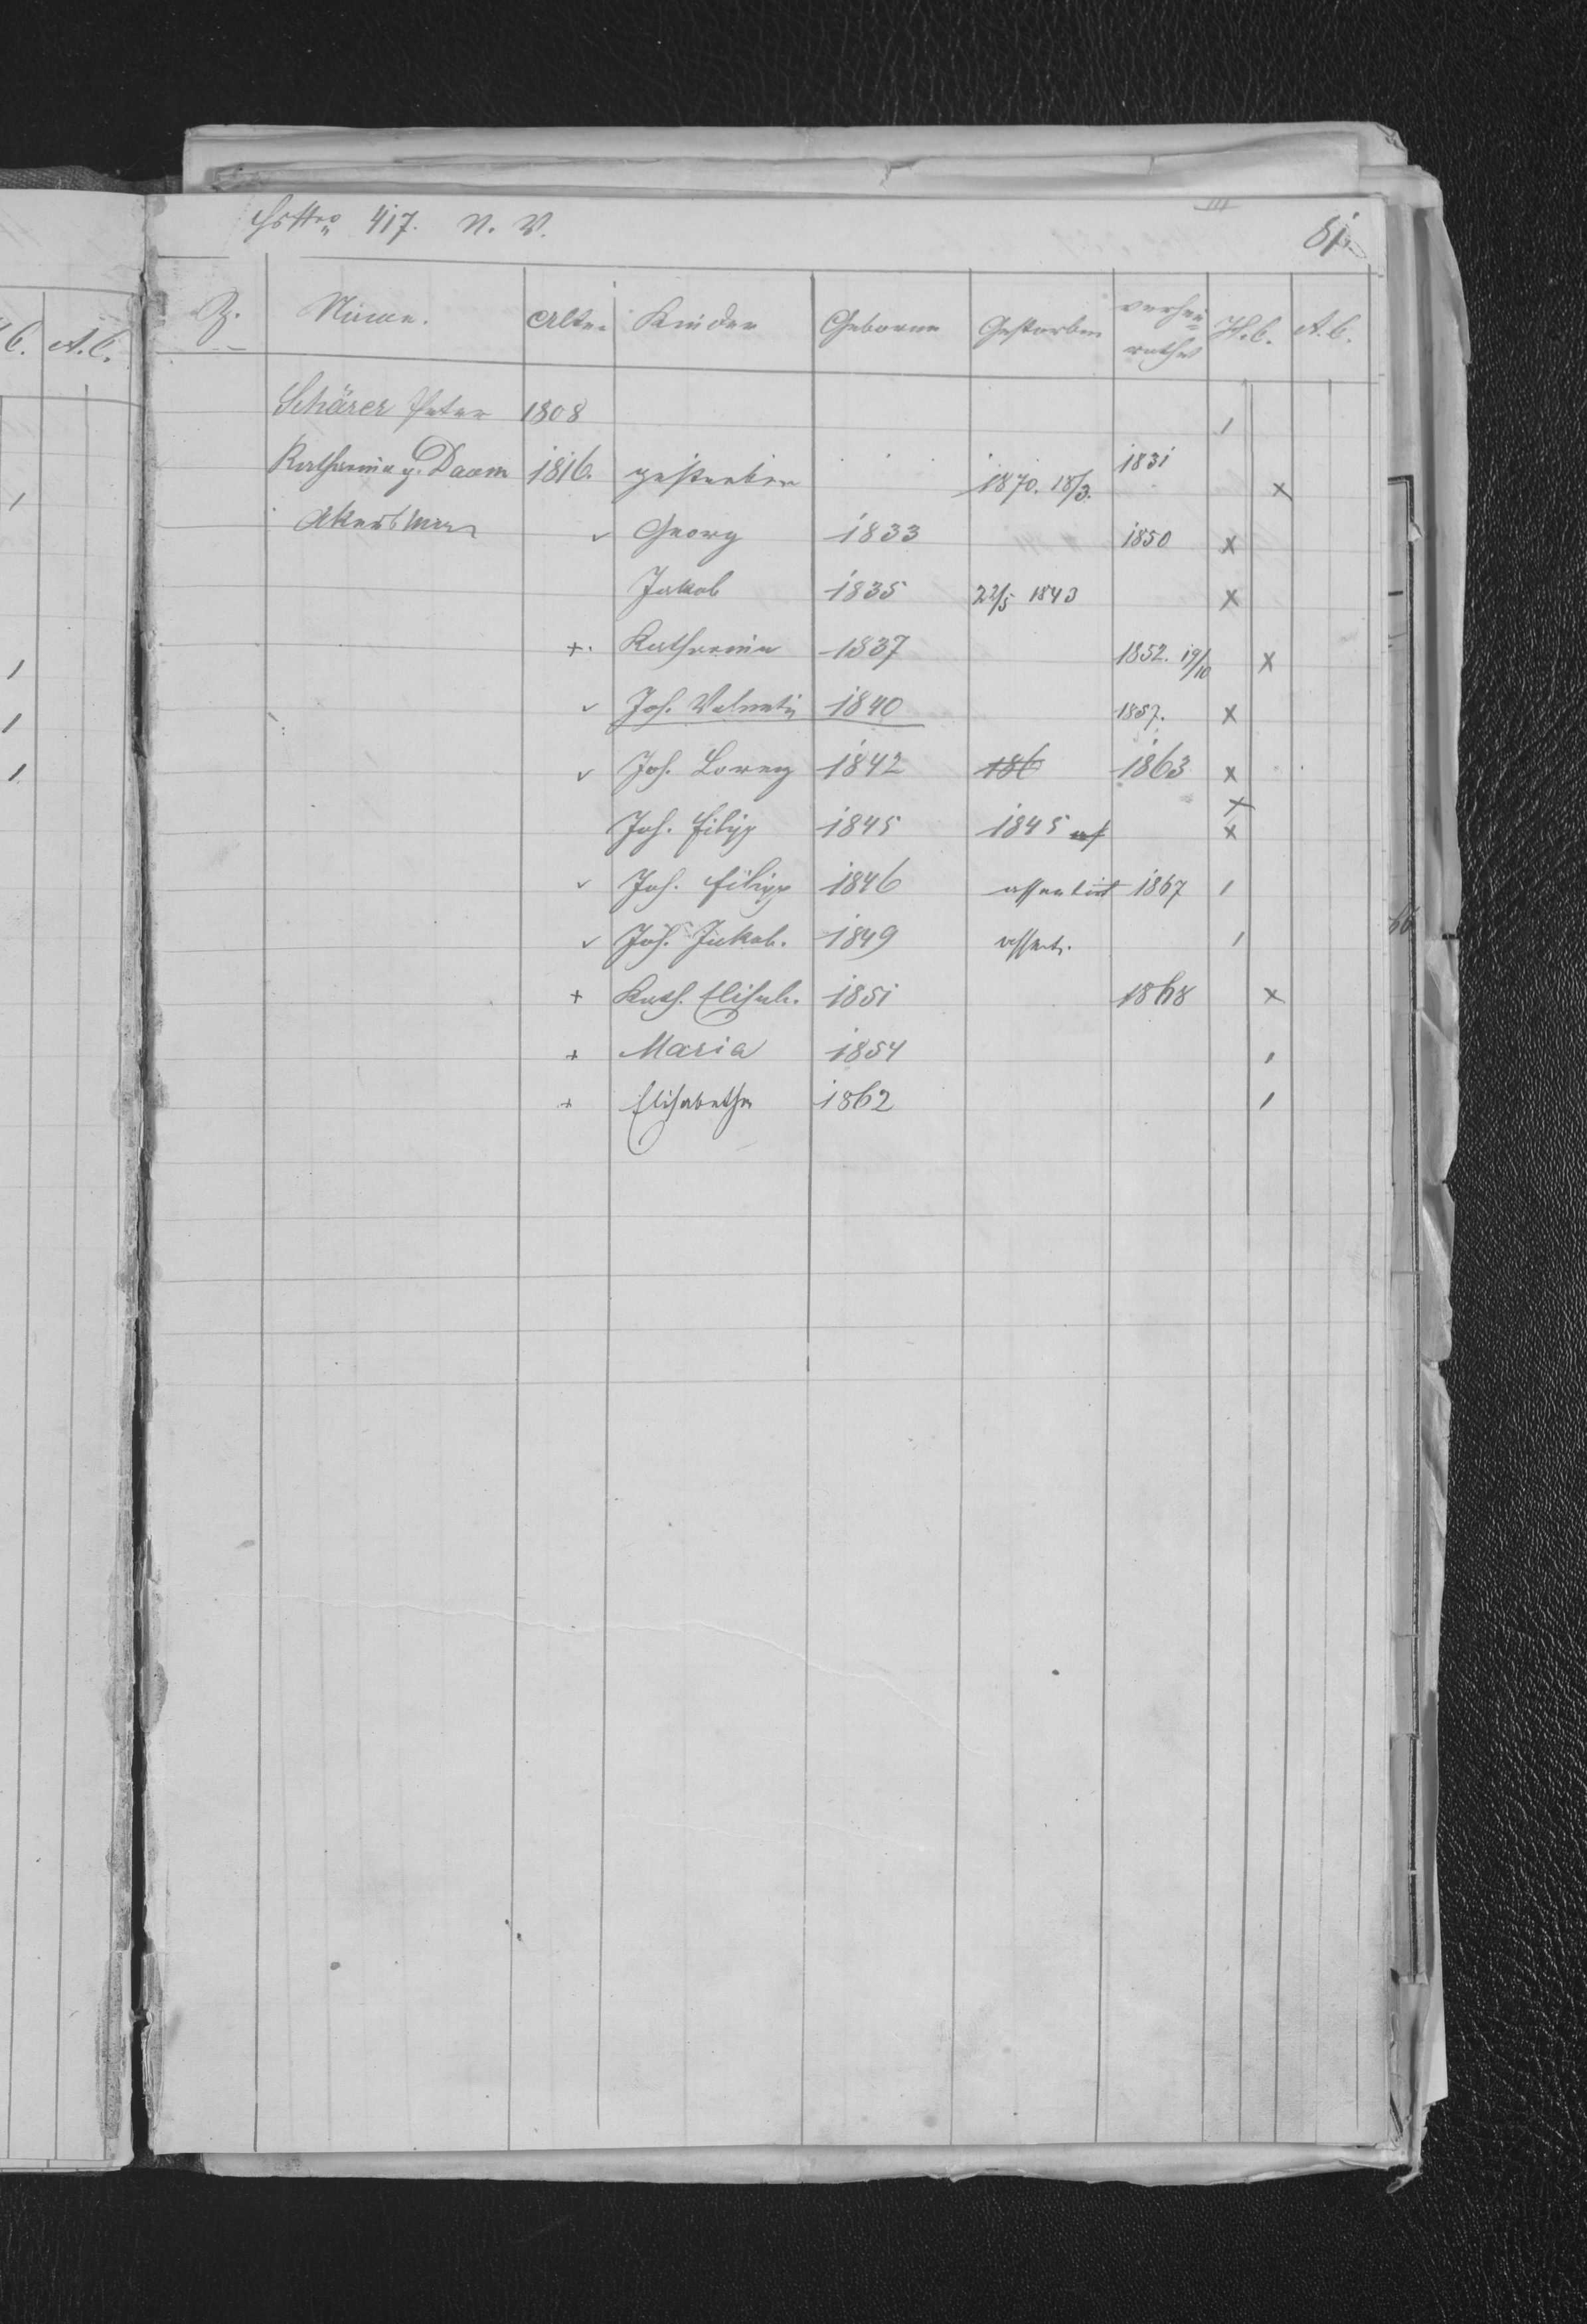 HsNro 417. N. W.
81.
Z. Name. Alter Kinder Geboren Gestorben verhei= H. C. A. C.
rathet
Schärer Peter 1808 /
Katharina g. Daam 1816. gestorben 1870. 18/3. 1831 x
Akersman ✓ Georg 1833 1850 x
Jakob 1835 22/5 1843 x
+. Katharina 1837 1852. 19/10 x
✓ Joh. Valentin 1840 1857. x
✓ Joh. Lorenz 1842 186 1863 x
x
Joh. Filipp 1845 1845 x
✓ Joh. Filipp 1846 assentirt 1867 /
✓ Joh. Jakob. 1849 assent. /
+ Kath. Elisab. 1851 1868 x
+ Maria 1854 /
+ Elisabetha 1862 /
C. A. C.
/
/
/
/